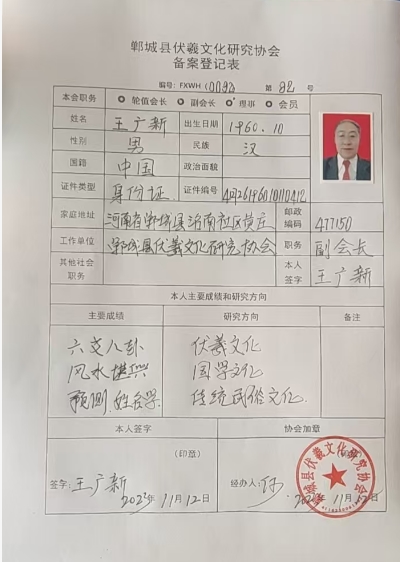 郸城县伏羲文化研究协会
备案登记表
编号: FXWH (0092 第 82 号
本会职务 轮值会长 副会长 理事 会员
姓名 王广新 出生日期 1960.10
性别 男 民族 汉
国籍 中国 政治面貌
证件类型 身份证 证件编号
家庭地址 河南省郸城县洺南社区黄庄 邮政编码 477150
工作单位 郸城县伏羲文化研究协会 职务 副会长
其他社会职务 本人签字 王广新
本人主要成绩和研究方向
主要成绩 研究方向 备注
六爻八卦 伏羲文化
风水堪舆 国学文化
预测.姓名学 传统民俗文化.
本人签字 协会加章
(印章) (印章)
签字: 王广新 经办人:
2023年11月12日 2023年11月12日
郸城县伏羲文化研究协会